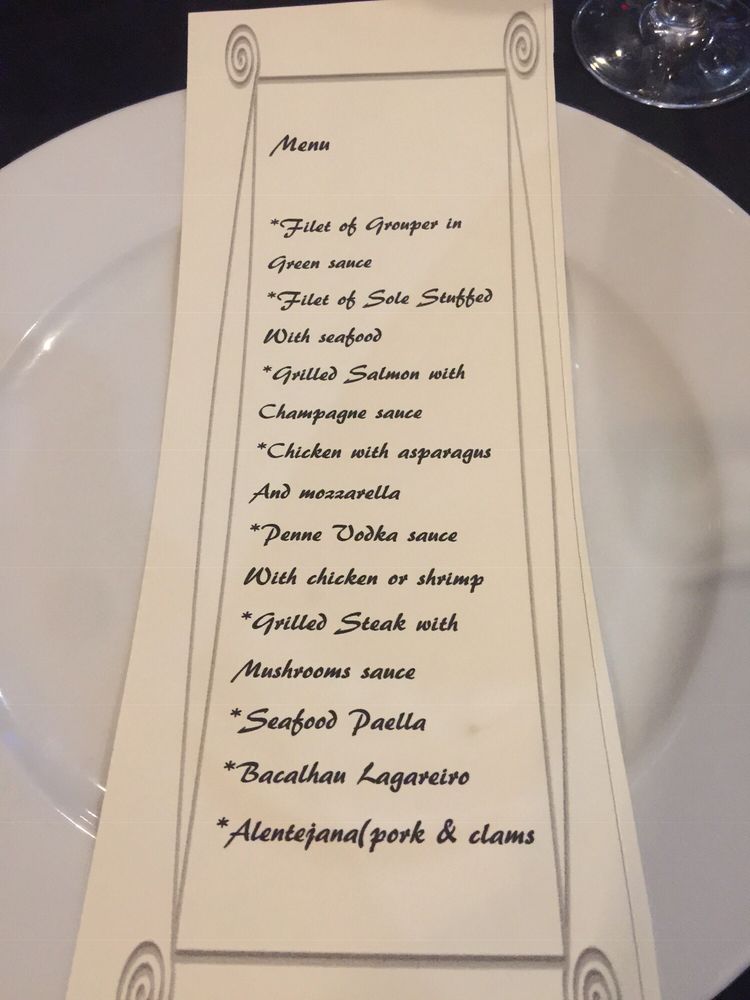 Menu
*Filet of Grouper in
Green sauce
*Filet of Sole Stuffed
With seafood
*Grilled Salmon with
Champagne sauce
*Chicken with asparagus
And mozzarella
*Penne Vodka sauce
With chicken or shrimp
*Grilled Steak with
Mushrooms sauce
*Seafood Paella
*Bacalhau Lagareiro
*Alentejana(pork & clams